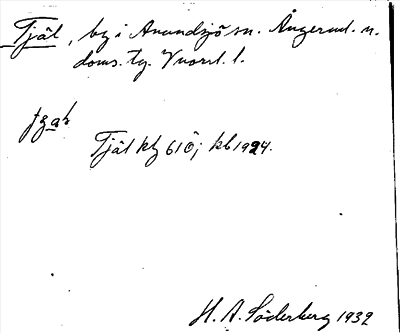 Tjäl, by i Anundsjö sn. Ångerml. n.
doms. tg. Vnorrl. l.
Tjäl kb 61Ö; kb 1924.
H. A. Söderberg 1932